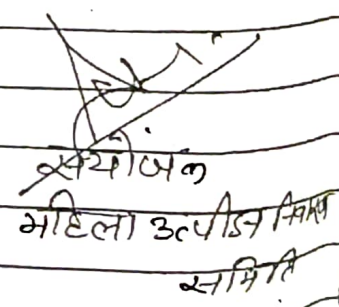 संयोजक
महिला उत्पीडन निवारण
समिति